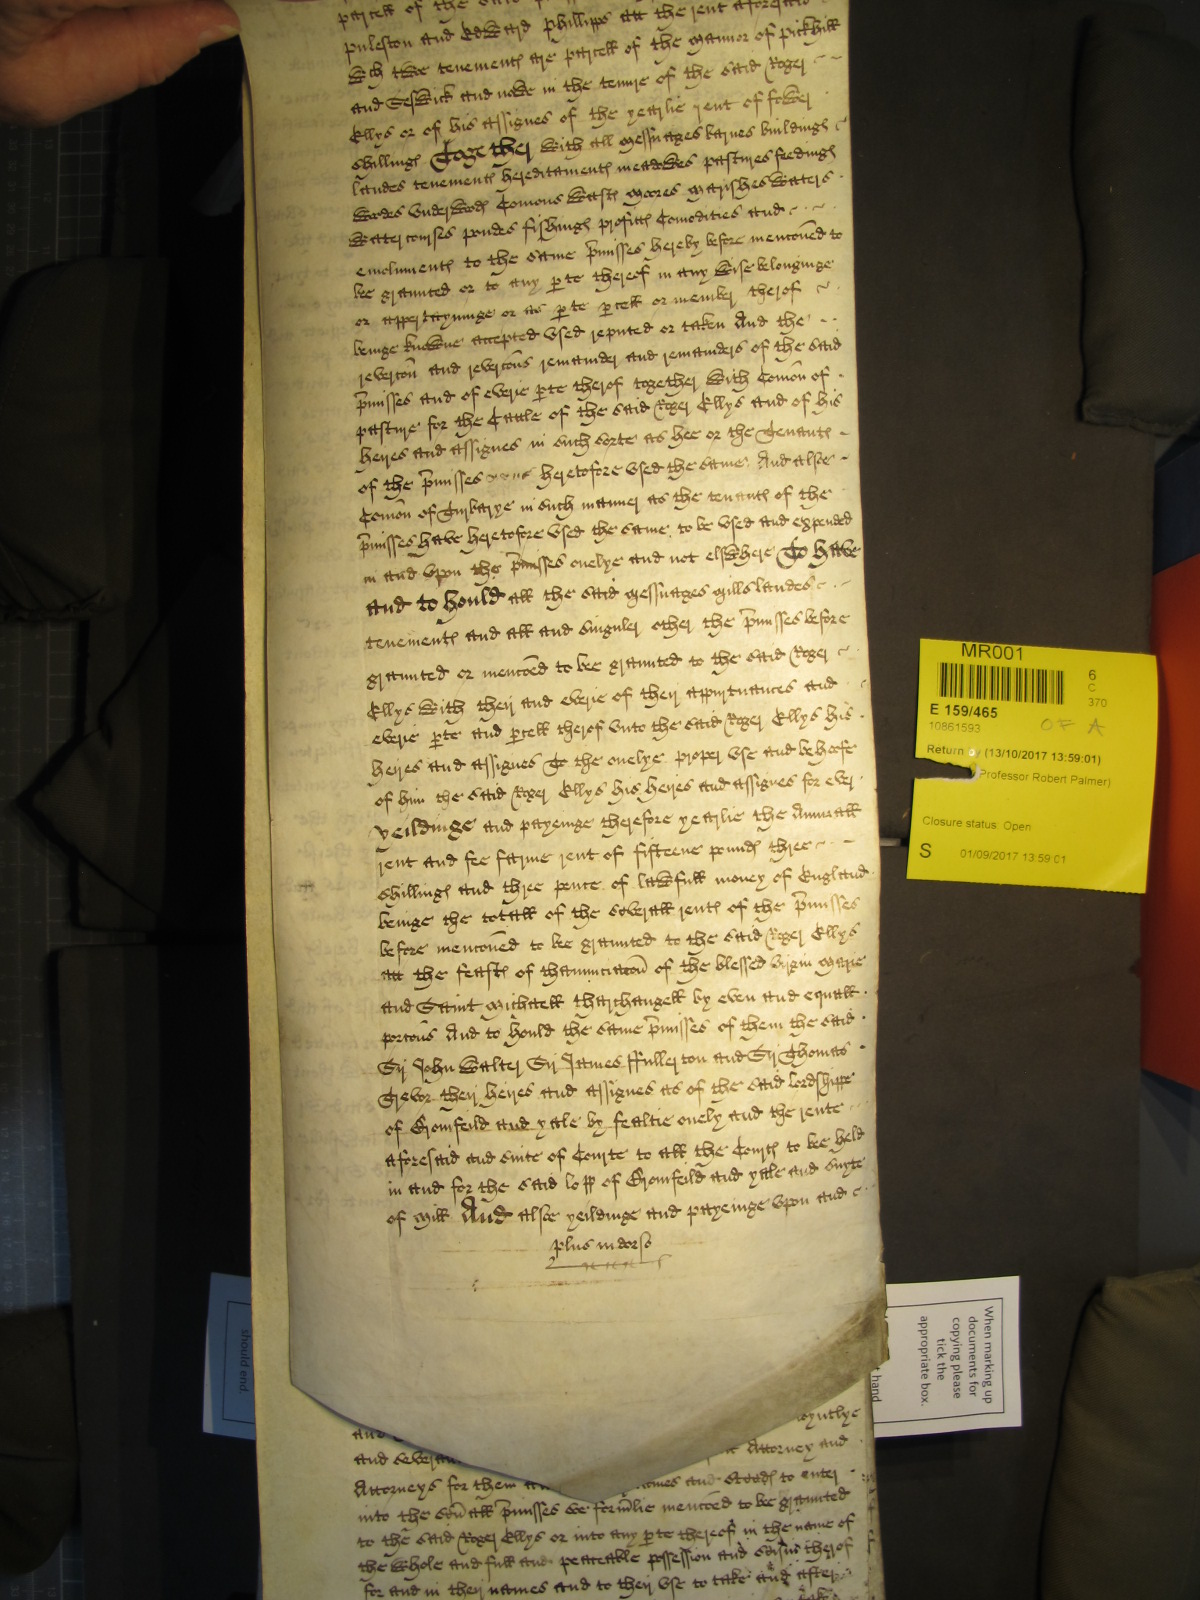 parcell of the said
puleston and Edward Phillipps att the rent aforesaid
wch twoe tenementes are parcell of the mannor of Pickhill
and Seswick and nowe in the tenure of the said Roger
Ellys or of his assignes of the yearlie rent of fower
shillinges Together with all messuages barnes buildinges
landes tenementes hereditamentes meadowes pastures feedinges
woodes underwoodes Comons wastes moores marishes waters
watercourses pondes fishinges profittes Comodities and
emolumentes to the same pmisses hereby before menconed to
be graunted or to any pte thereof in any wise belonginge
or appertayninge or as pte pcell or member therof
beinge knowne accepted used reputed or taken And the
revercon and revercons remainder and remainders of the said
pmisses and of everie pte therof together with Comon of
pasture for the Cattle of the said Roger Ellys and of his
heires and assignes in such sorte as hee or the Tenantes
of the pmisses have heretofore used the same And alsoe
Comon of Turbarye in such manner as the tenantes of the
pmisses have heretofore used the same to be used and expended
in and upon the pmisses onelye and not elswhere To have
and to hould all the said messuages mills landes
tenementes and all and singuler other the pmisses before
graunted or mencoed to bee graunted to the said Roger
Ellys with their and everie of their appurtnances and
everie pte and pcell therof unto the said Roger Ellys his
heires and assignes To the onelye proper use and behoofe
of him the said Roger Ellys his heires and assignes for ever
yeildinge and payeinge therefore yearlie the Annuall
rent and fee farme rent of fifteene poundes three
shillinges and three pence of lawfull money of England
beinge the totall of the severall rentes of the pmisses
before menconed to be graunted to the said Roger Ellys
att the feastes of thannunciacon of the blessed virgin Marie
and Saint Michaell tharchangell by even and equall
porcons And to hould the same pmisses of them the said
Sr John Walter Sr James Fullerton and Sr Thomas
Trevor their heires and assignes as of the said lordshippe
of Bromfeild and yale by fealtie onely and the rente
aforesaid and suite of Courte to all the Courtes to bee held
in and for the said lopp of Bromfeild and yale and suyte
of mill And alsoe yeildinge and payeinge upon and
plus in dorso
and
and severall Attorney and
Attorneys for them and names and steedes to enter
into the said all pmisses before mencoed to be graunted
to the said Roger Ellys or into any pte thereof in the name of
the whole and full and peaceable possession and seisin therof
for and in their names and to their use to take and after
MR001
6
C
370
E 159/465
10861593
OF A
Return by (13/10/2017 13:59:01)
Professor Robert Palmer)
Closure status: Open
S 01/09/2017 13:59:01
When marking up
documents for
copying please
tick the
appropriate box.
hand
should end.